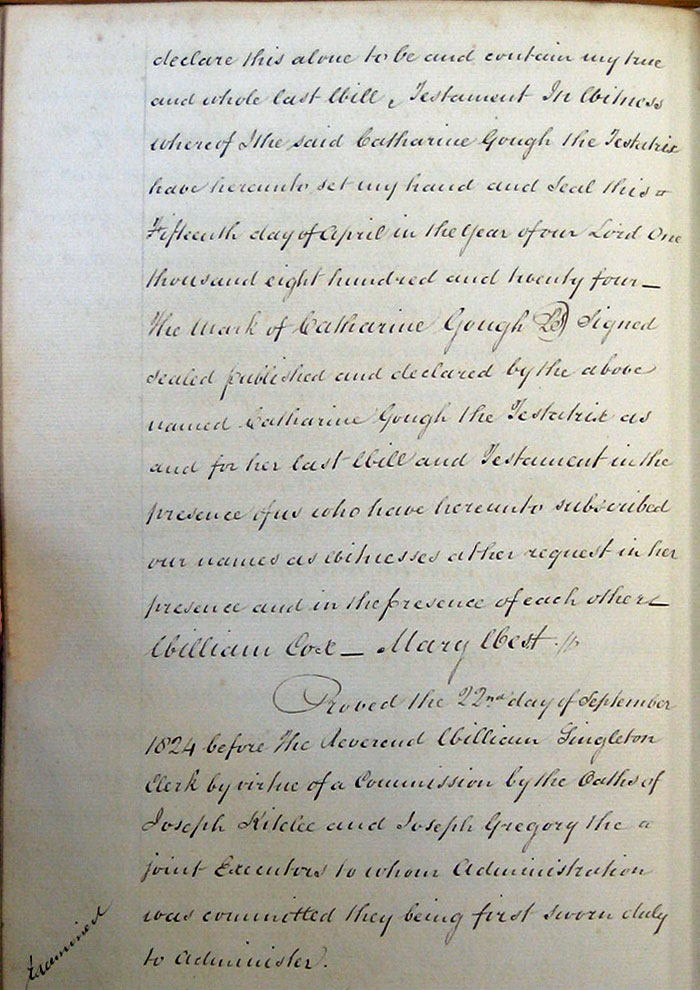 declare this alone to be and contain my true
and whole last Will & Testament In Witness
whereof I the said Catharine Gough the Testatrix
have hereunto set my hand and seal this
Fifteenth day of April in the Year of our Lord One
thousand eight hundred and twenty four —
The Mark of Catharine Gough LS Signed
sealed published and declared by the above
named Catharine Gough the Testatrix as
and for her last Will and Testament in the
presence of us who have hereunto subscribed
our names as Witnesses at her request in her
presence and in the presence of each other —
William Cox — Mary West
Proved the 22nd day of September
1824 before the Reverend William Singleton
Clerk by virtue of a Commission by the Oaths of
Joseph and Joseph Gregory the
joint Executors to whom Administration
was committed they being first sworn duly
to Administer.
Examined